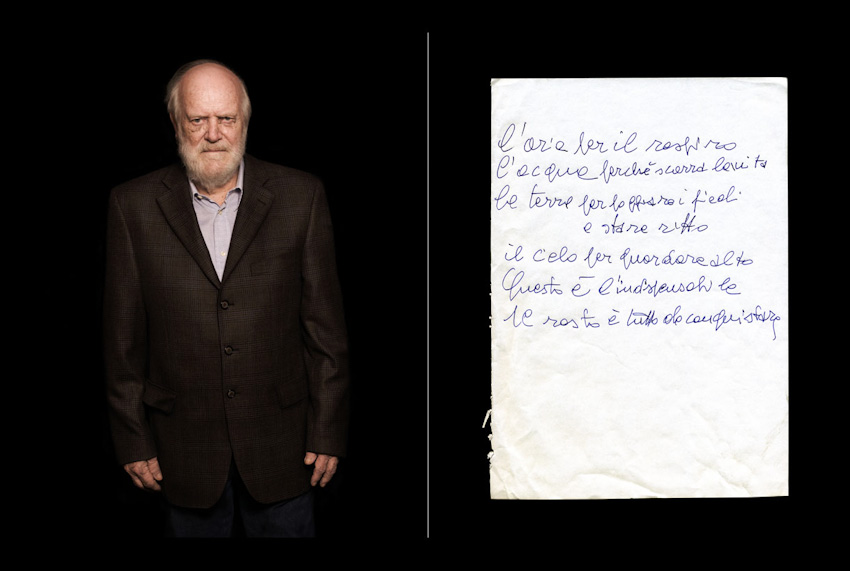 L'aria per il respiro
l'acqua perché scorra la vita
la terra per poggiare i piedi
e stare ritto
il cielo per guardare alto
Questo è l'indispensabile
Il resto è tutto da conquistare